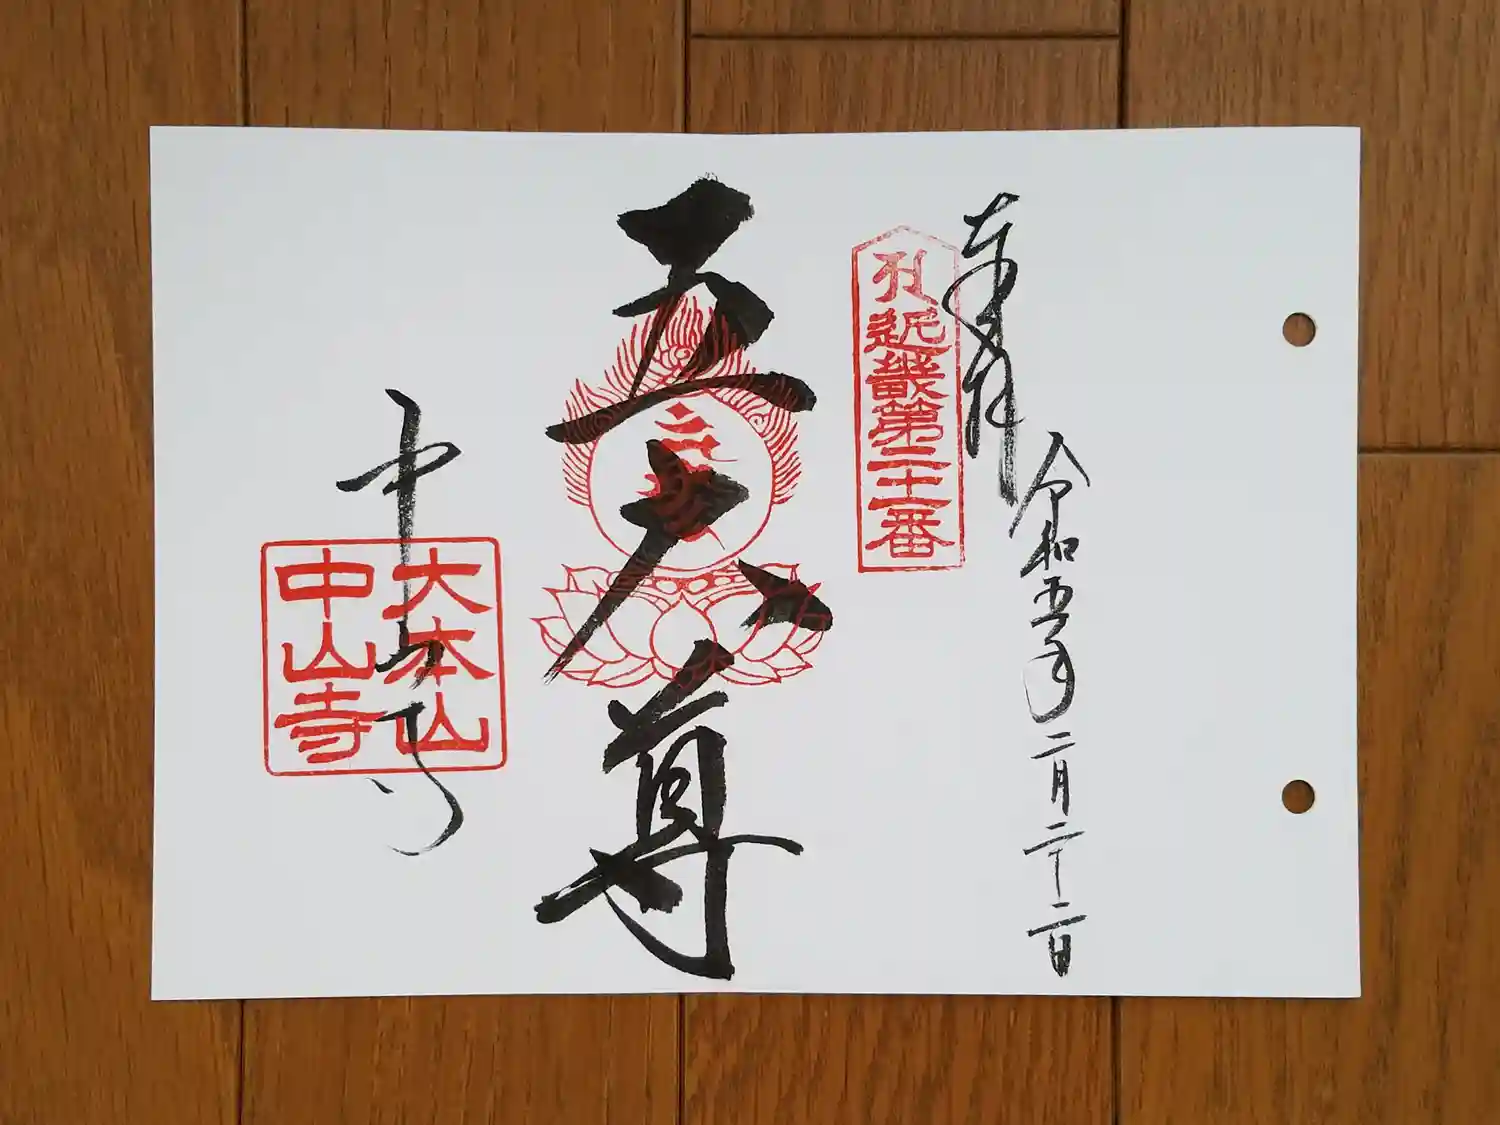 奉拝
令和五年二月二十二日
札近畿第二十一番
五大尊
中山寺
大本山
中山寺